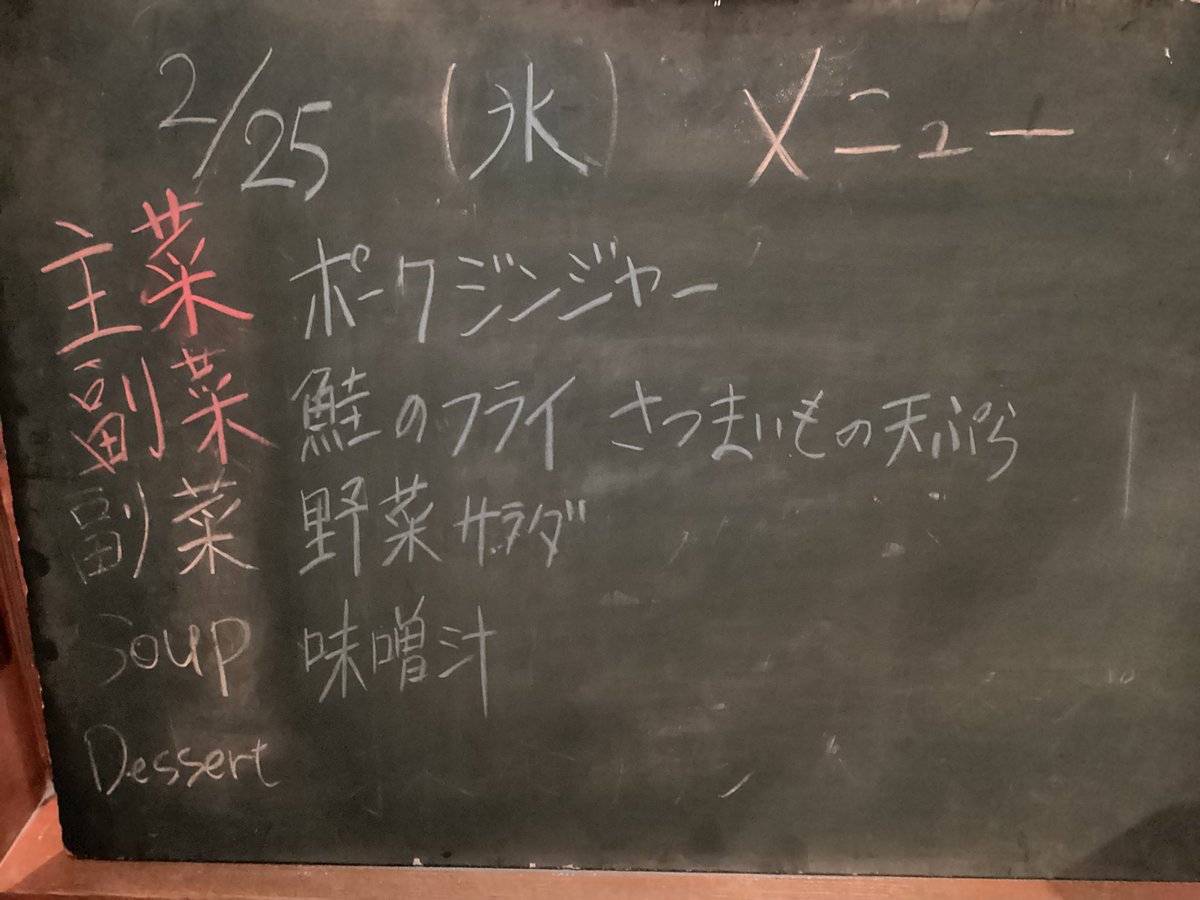 2/25 (水) メニュー
主菜 ポークジンジャー
副菜 鮭のフライ さつまいもの天ぷら
副菜 野菜サラダ
Soup 味噌汁
Dessert